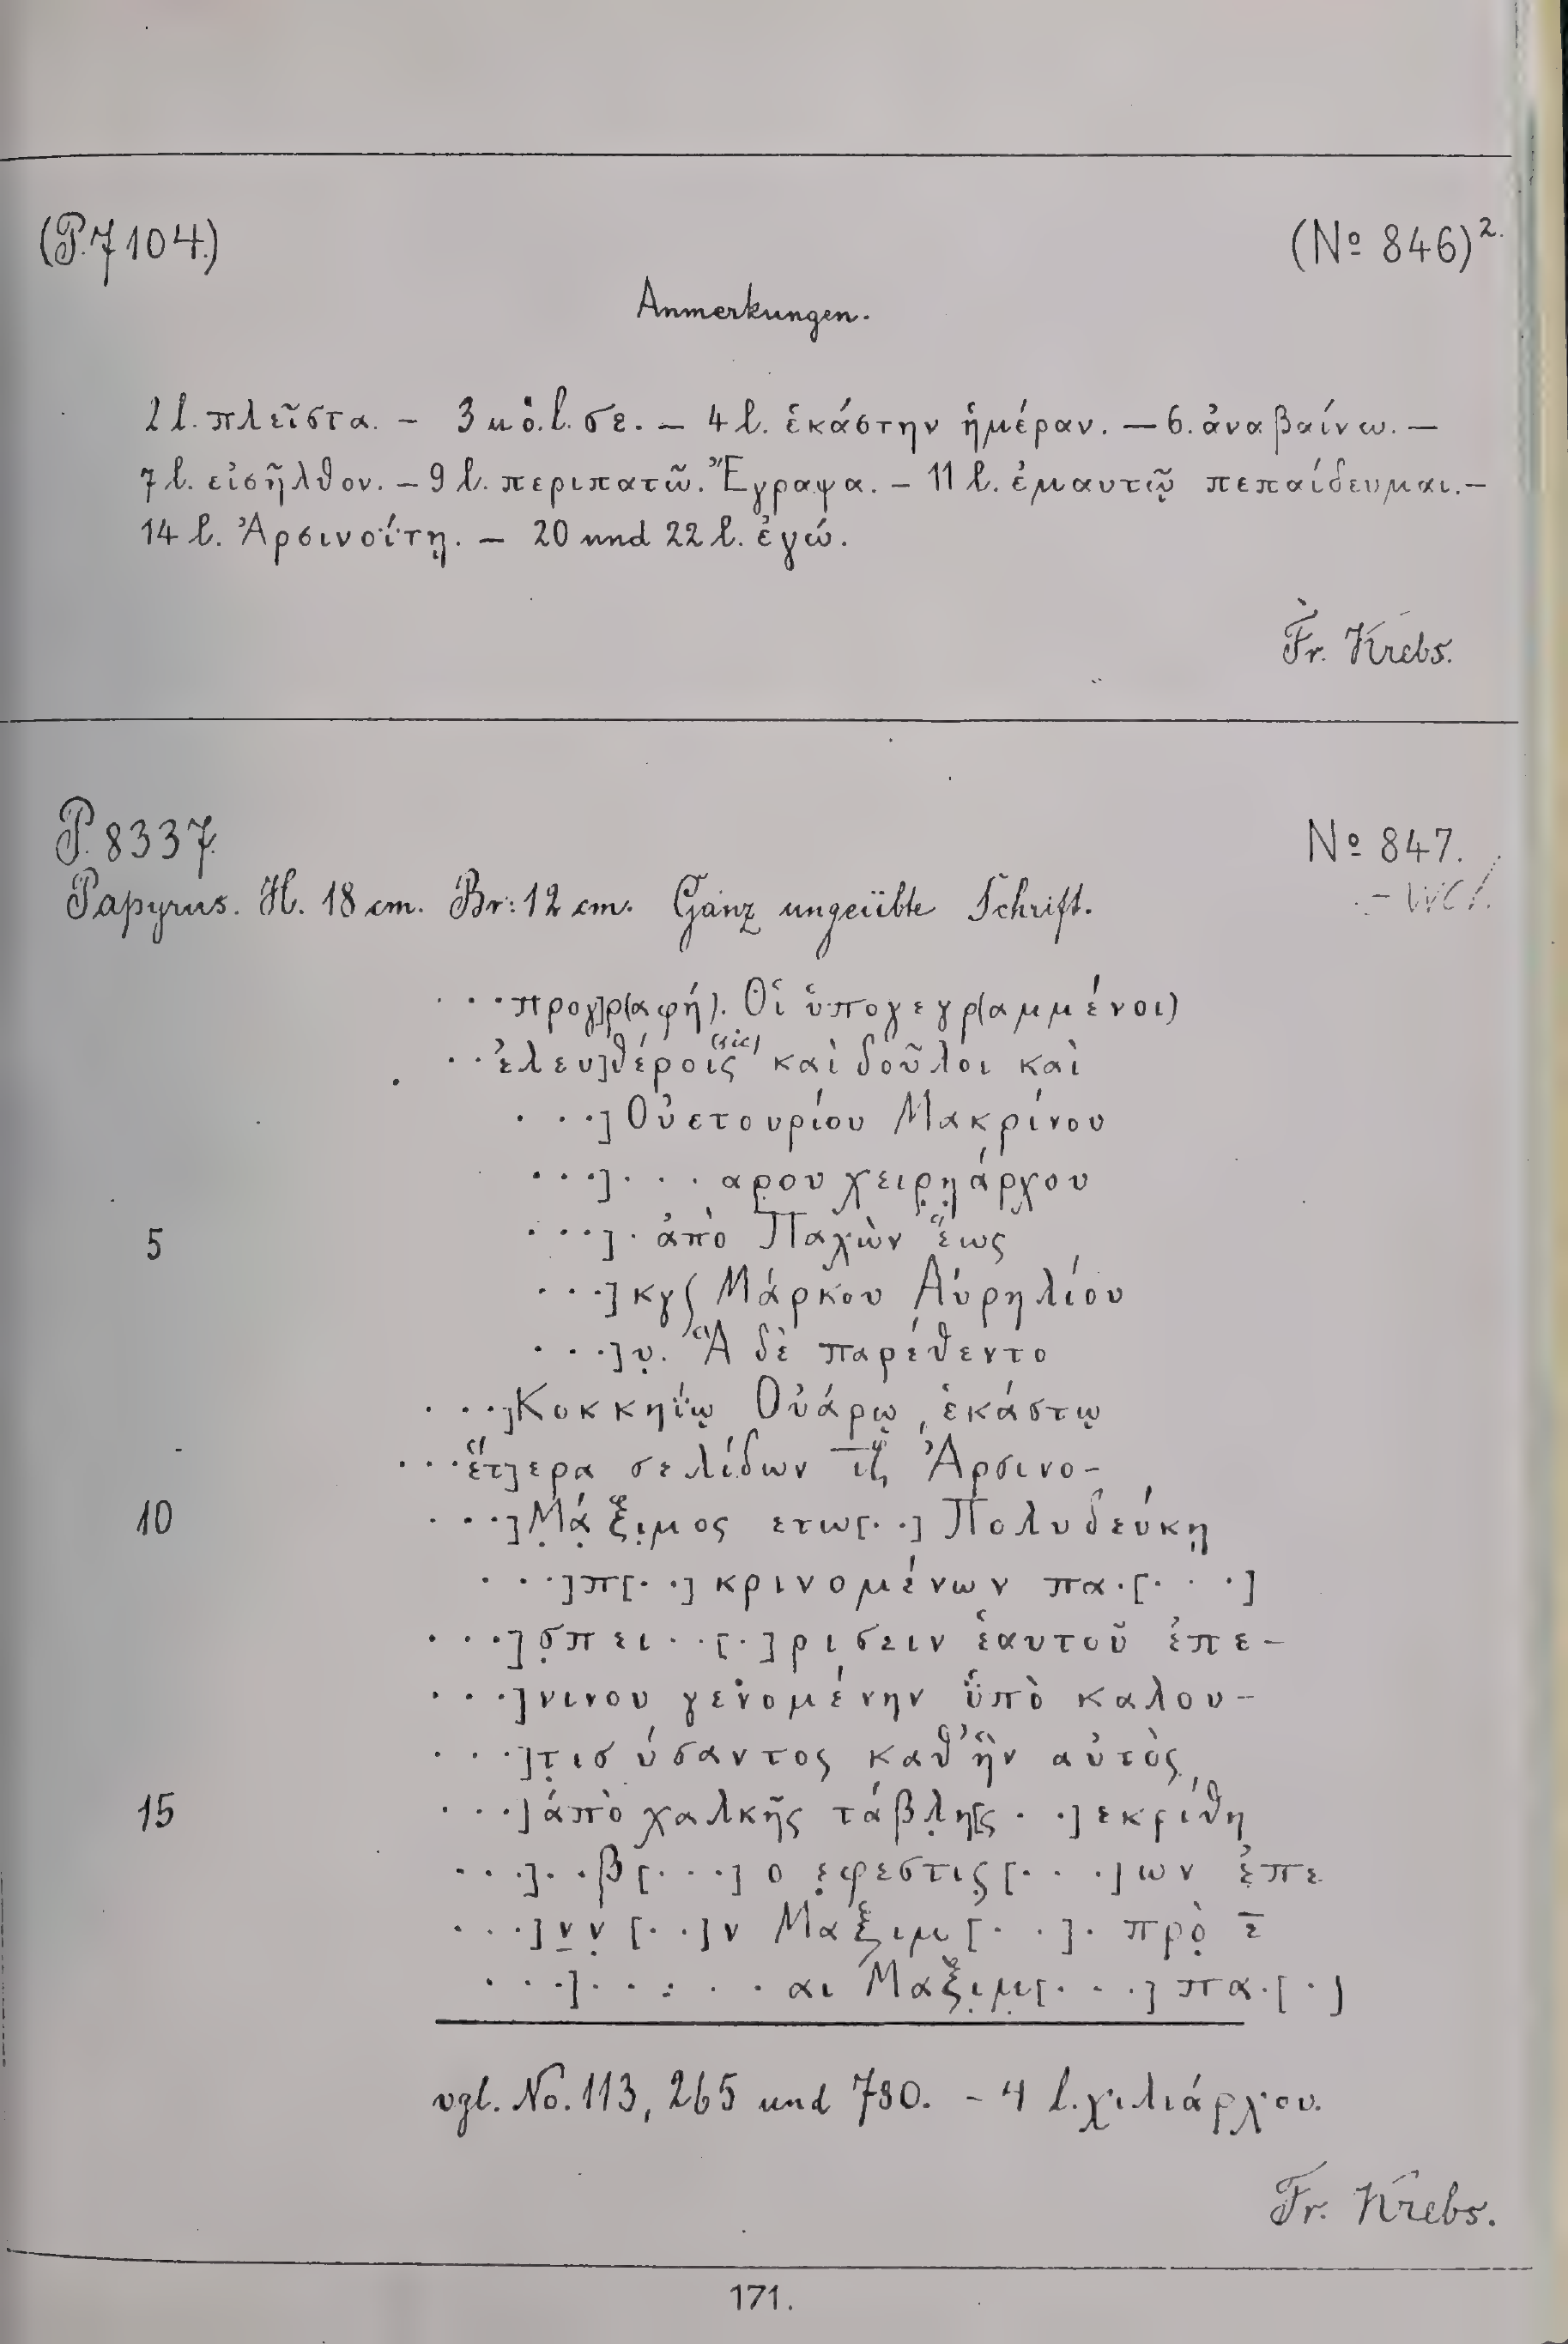 (P. 7104.) (Nº 846)².
Anmerkungen.
2 l. πλεῖστα. – 3 l. σε. – 4 l. ἑκάστην ἡμέραν. – 6. ἀναβαίνω. –
7 l. εἰσῆλθον. – 9 l. περιπατῶ. Ἔγραψα. – 11 l. ἐμαυτῷ πεπαίδευμαι. –
14 l. Ἀρσινοΐτῃ. – 20 und 22 l. ἐγώ.
Fr. Krebs.
P. 8337. Nº 847.
Papyrus. H. 18 cm. Br: 12 cm. Ganz ungeübte Schrift.
· · · προγ]ρ(αφή). Οἱ ὑπογεγρ(αμμένοι)
· · ἐλευ]θέροις (sic) καὶ δοῦλοι καὶ
· · ·] Οὐετουρίου Μακρίνου
· · ·] · · · αρου χειρηάρχου
5 · · ·] · ἀπὸ Παχὼν ἕως
· · ·] κγ∫ Μάρκου Αὐρηλίου
· · ·]υ. Ἃ δὲ παρέθεντο
· · ·] Κοκκηΐῳ Οὐάρῳ, ἑκάστῳ
· · · ἕτ]ερα σελίδων ιζ Ἀρσινο-
10 · · ·] Μάξιμος ετω[· ·] Πολυδεύκῃ
· · ·]π[· ·] κρινομένων πα·[· · ·]
· · ·] σπει · · [·]ρισειν ἑαυτοῦ ἐπε-
· · ·]νινου γενομένην ὑπὸ καλου-
· · ·]τισύσαντος καθ᾽ ἣν αὐτὸς
15 · · ·] ἀπὸ χαλκῆς τάβλη[ς · ·] εκρίθη
· · ·] · · β[· · ·] ο εφεστις[· · ·]ων ἐπε
· · ·]νν[· ·]ν Μαξιμ[· · ·] · πρὸ ε̅
· · ·] · · · · · αι Μαξιμ[· · ·] πα·[·]
vgl. No. 113, 265 und 780. – 4 l. χιλιάρχου.
Fr. Krebs.
171.